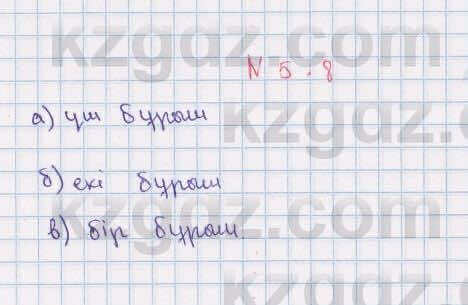 kzgdz.com
N 5.8
а) үш бұрыш
kzgdz.com
б) екі бұрыш
kzgdz.com
в) бір бұрыш.
kzgdz.com